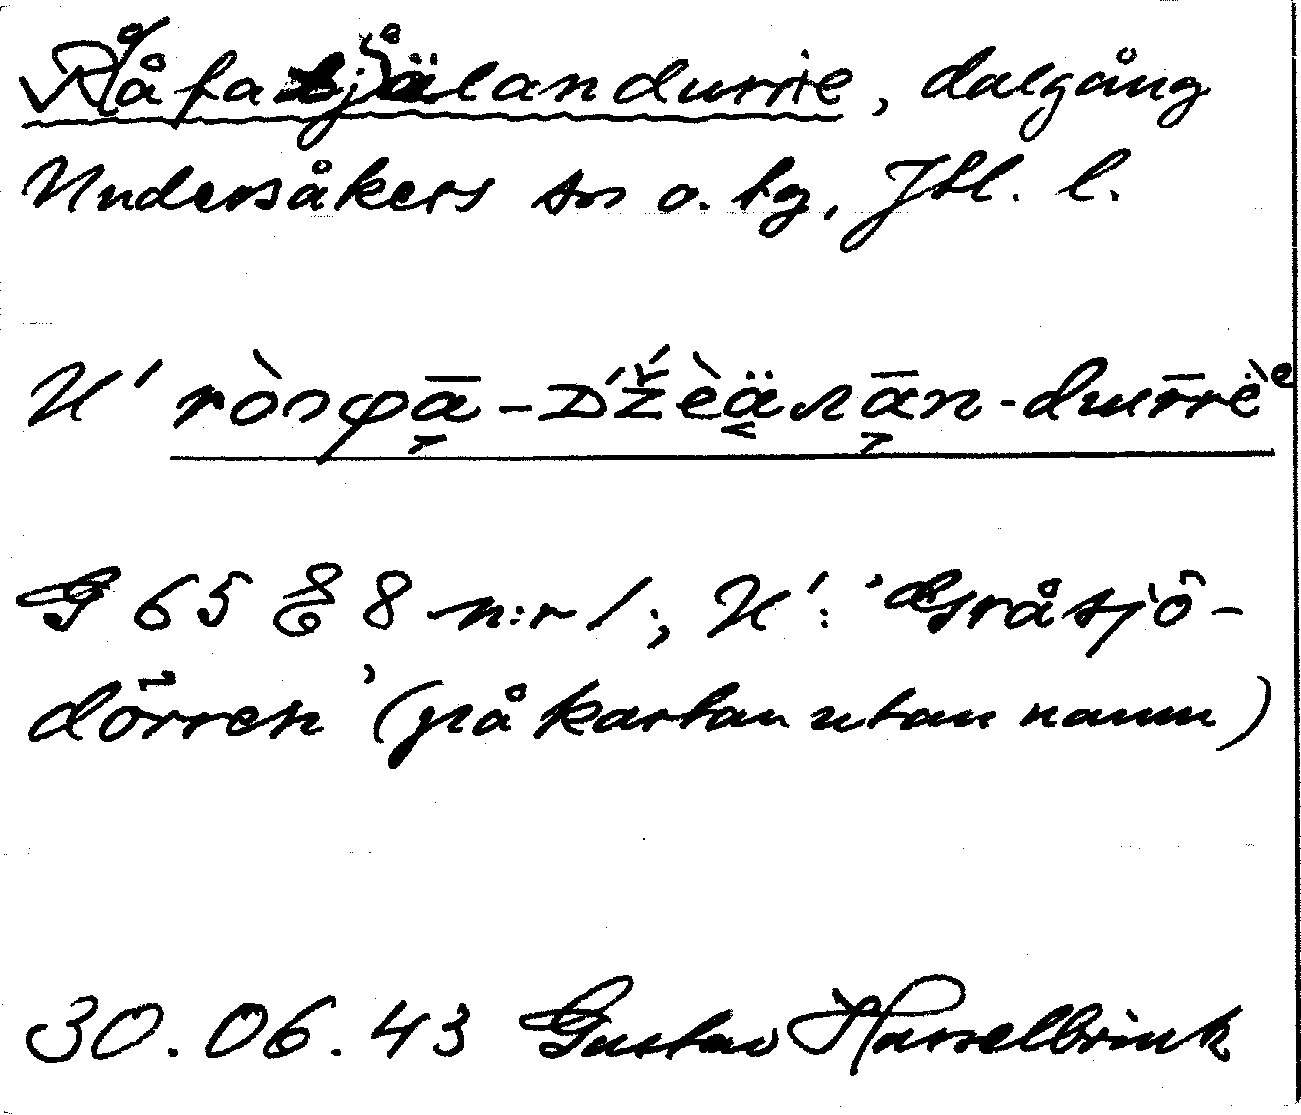 Råfatjälandurrie, dalgång
Undersåkers sn o. tg, Jtl. l.
U' rònφā-D'žèäлān-durrēᵉ
G 65 E 8 n:r 1; U': 'Gråsjö-
dörren' (på kartan utan namn)
30.06.43 Gustav Hasselbrink